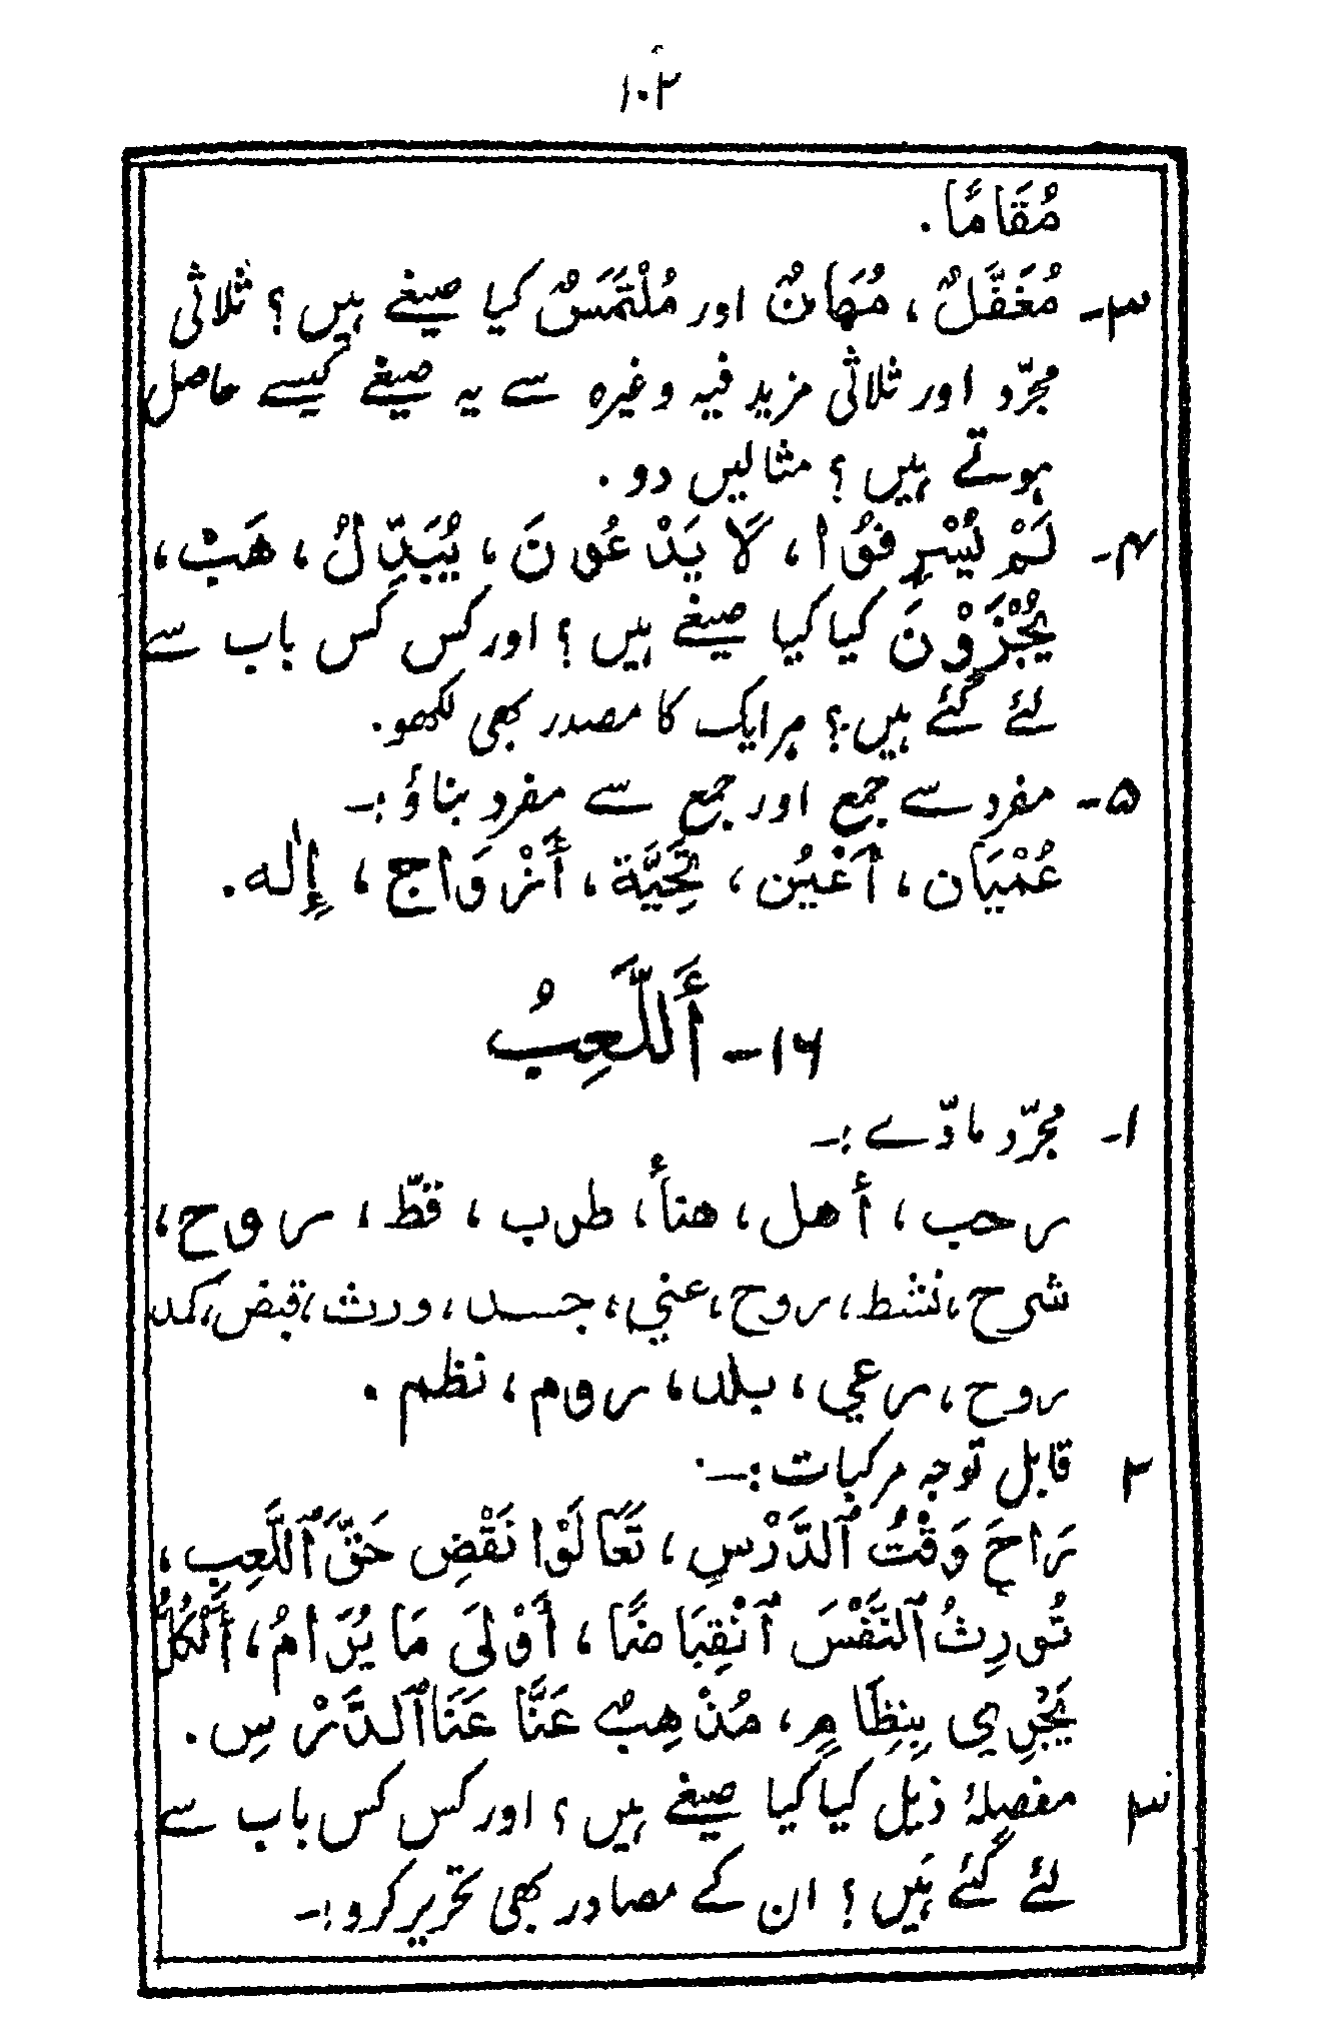 ۱۰۲
مُقَامًا.
۳- مُغَفَّلٌ، مُهَانٌ اور مُلْتَمَسٌ کیا صیغے ہیں؟ ثلاثی
مجرّد اور ثلاثی مزید فیہ وغیرہ سے یہ صیغے کیسے حاصل
ہوتے ہیں؟ مثالیں دو.
۴- لَمْ يُسْرِفُوْا، لَا يَدْعُونَ، يُبَدِّلُ، هَبْ،
يُجْزَوْنَ کیا کیا صیغے ہیں؟ اور کس کس باب سے
لئے گئے ہیں؟ ہر ایک کا مصدر بھی لکھو.
۵- مفرد سے جمع اور جمع سے مفرد بناؤ :-
عُمْيَان، أَعْيُن، تَحِيَّة، أَزْوَاج، إِلٰه.
۱۶- أَللَّعِبُ
۱- مجرّد مادّے :-
رحب، أهل، هنأ، طرب، قطّ، روح،
شرح، نشط، روح، عني، جسد، ورث، قبض، كمد
روح، رعي، بلد، روم، نظم.
۲ قابل توجہ مرکبات :-
رَاحَ وَقْتُ ٱلدَّرْسِ، تَعَالَوْا نَقْضِ حَقَّ ٱللَّعِبِ،
تُورِثُ ٱلنَّفْسَ ٱنْقِبَاضًا، أَوْلَى مَا يُرَامُ، أَلْكُلُّ
يَجْرِي بِنِظَامٍ، مُذْهِبٌ عَنَّا عَنَا ٱلدَّرْسِ.
۳ مفصلۂ ذیل کیا کیا صیغے ہیں؟ اور کس کس باب سے
لئے گئے ہیں؟ ان کے مصادر بھی تحریر کرو :-